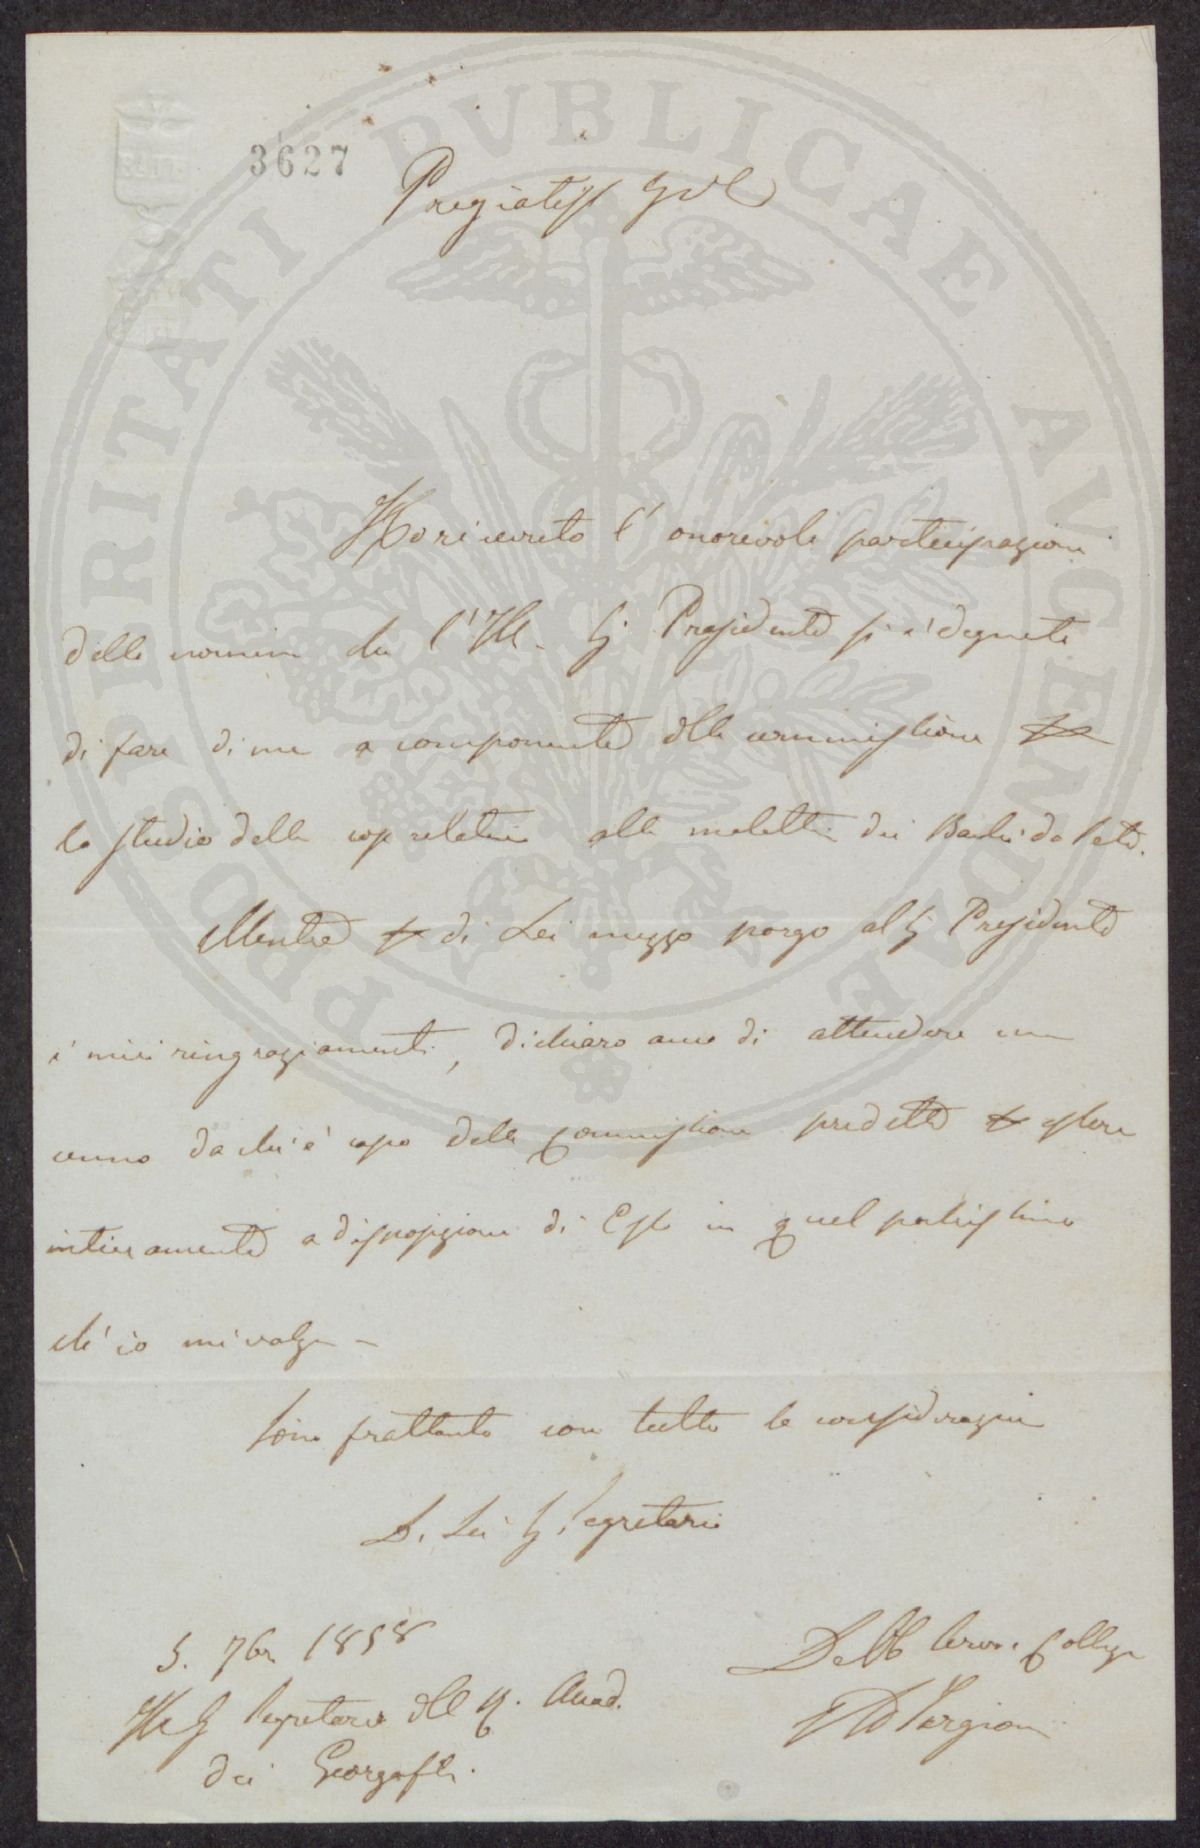 PROSPERITATI PVBLICAE AVGENDAE
BATH
3627
Pregiatiss
Ho ricevuto l' onorevole partecipazione
della nomina che l' Ill. Sig. Presidente si è degnato
di fare di me a componente della commissione per
lo studio delle cose relative alla malattia dei Bachi da Seta.
Mentre per di Lei mezzo porgo al Sig Presidente
i miei ringraziamenti, dichiaro anco di attendere un
cenno da chi è capo della Commissione predetta per essere
interamente a disposizione di Essa in quel pochissimo
ch' io mi valga –
Sono frattanto con tutta la considerazione
D. Lei Sig. Segretario
5. 7br 1858
Ill Sig Segretario dell R. Accad.
dei Georgofili.
Devot Servo. e Collega
Targioni